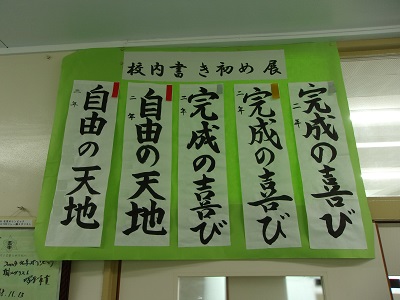 校内書き初め展
完成の喜び
二年
完成の喜び
二年
完成の喜び
二年
自由の天地
二年
自由の天地
二年